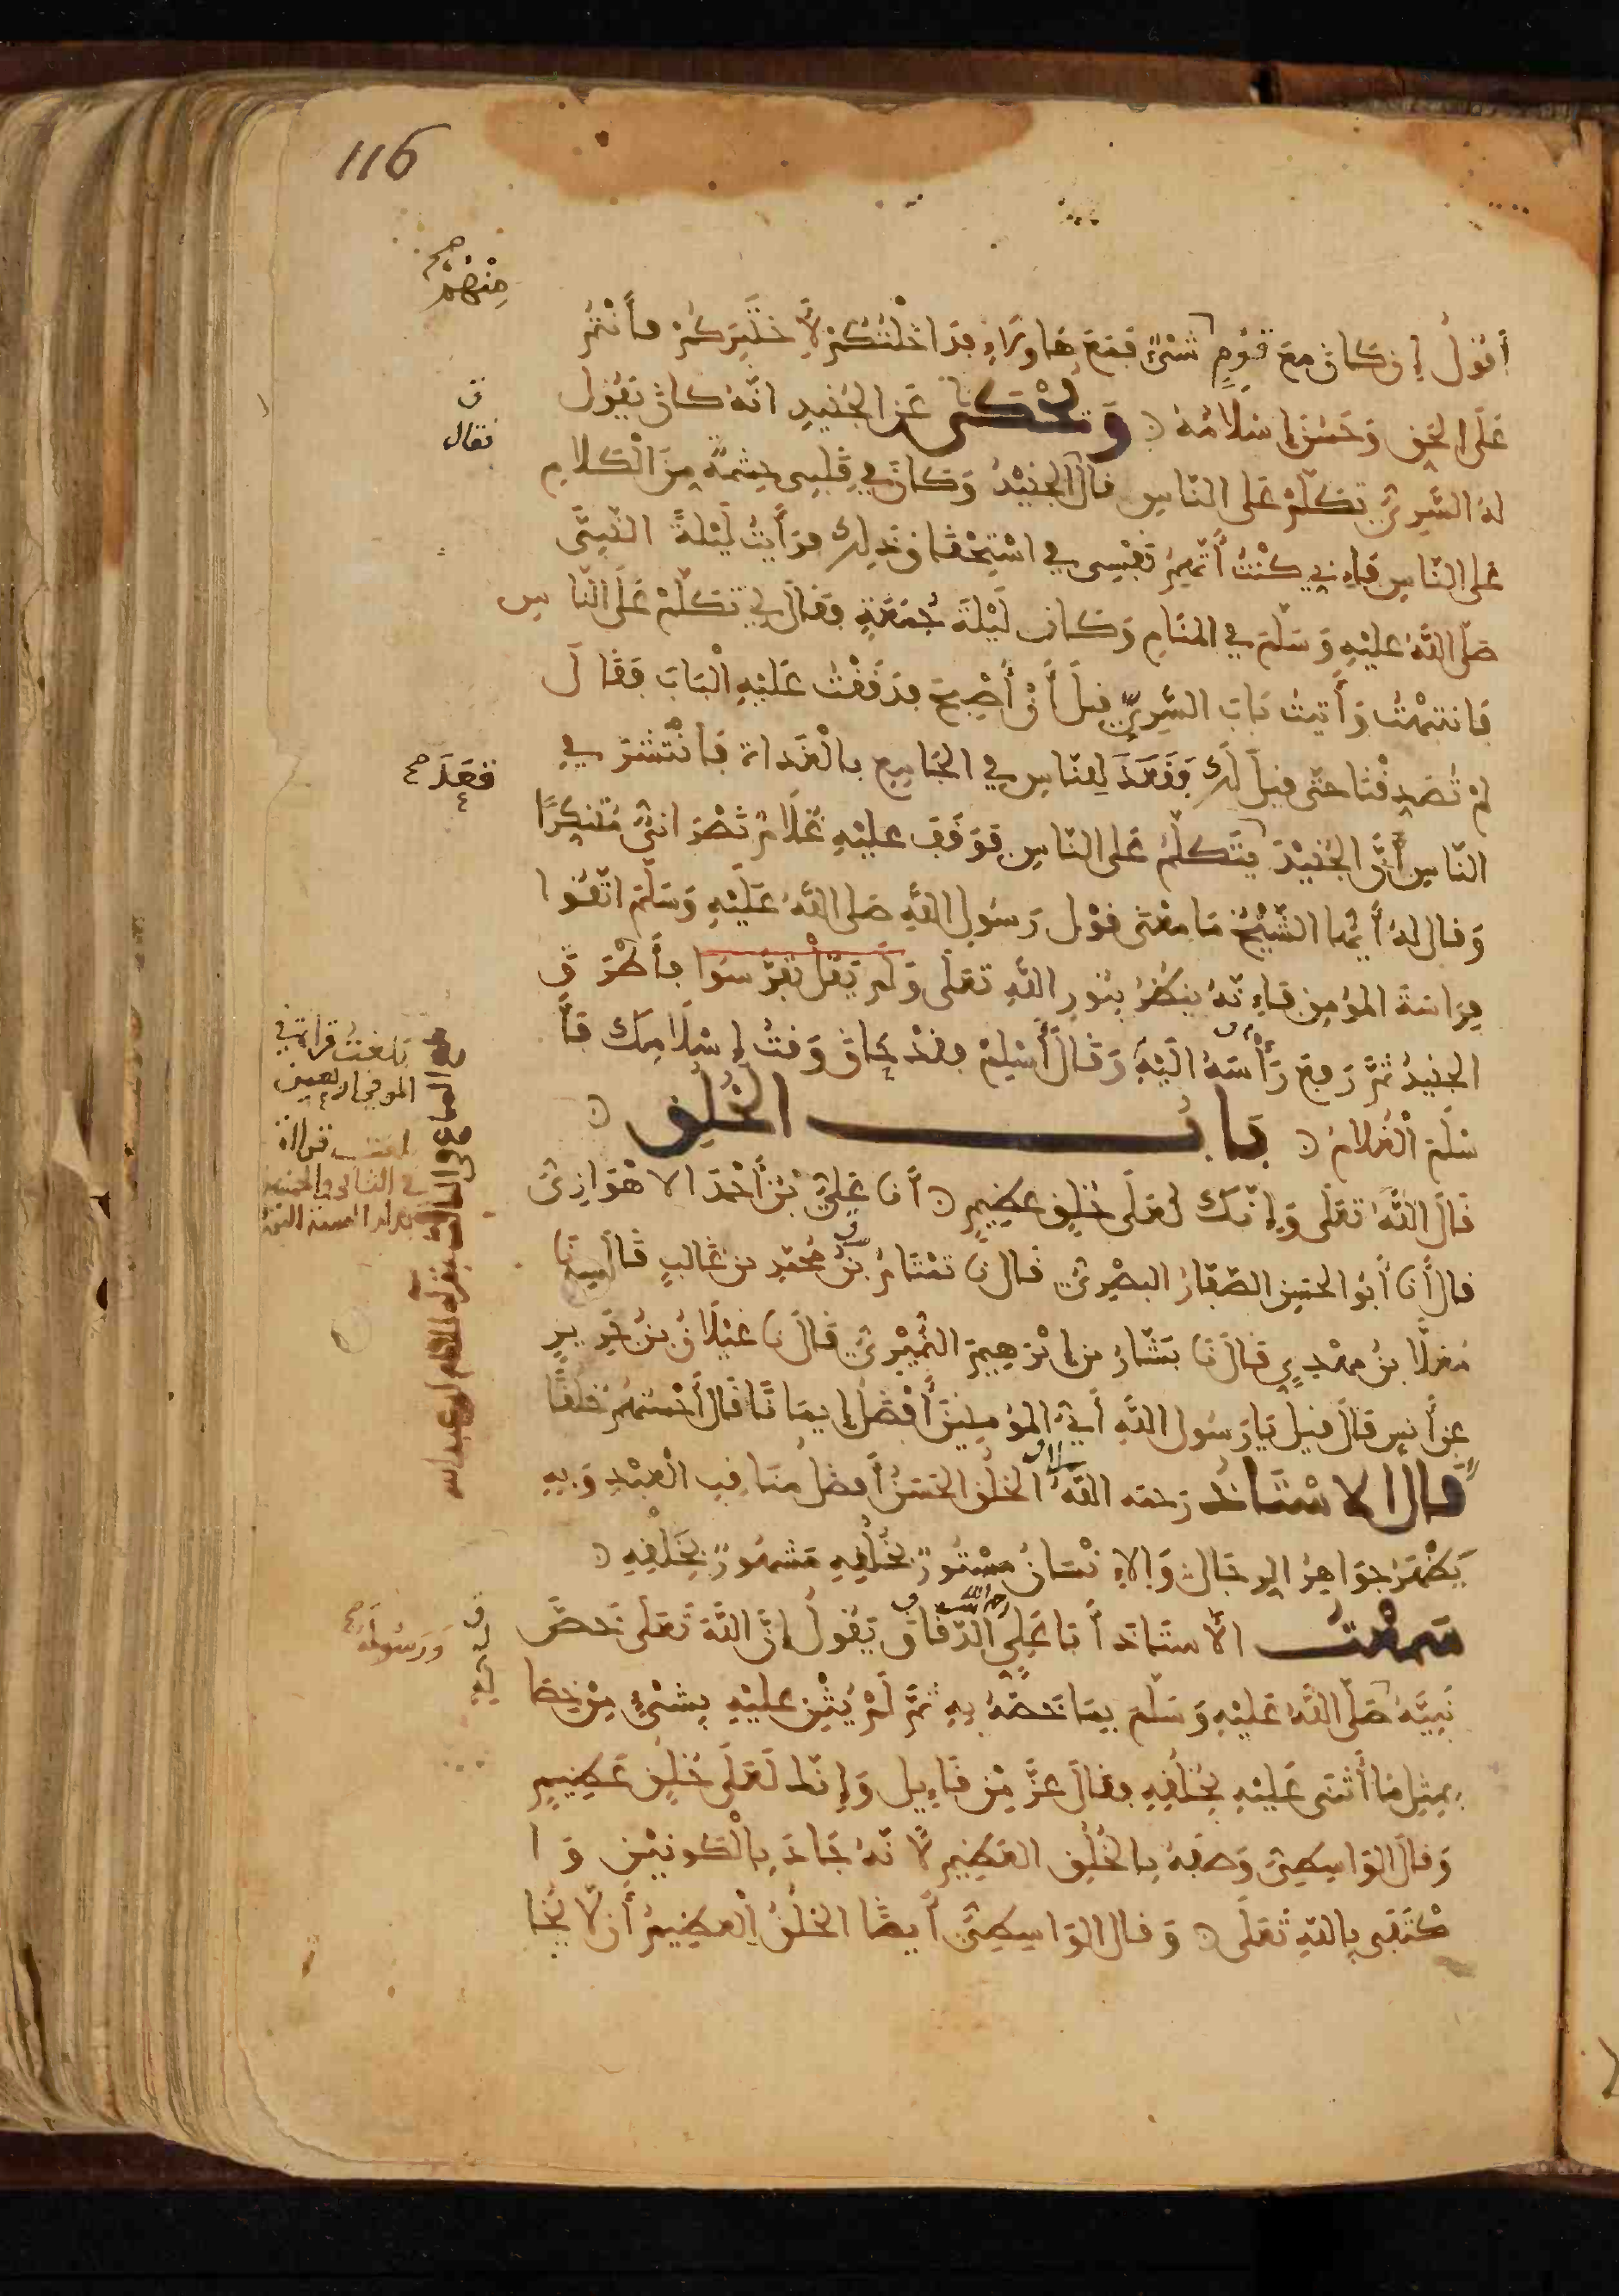 116
منهم صح
أقول إن كان مع قوم شىء فمع هاولاء فداخلتكم لأختبركم فأنتم
على الحق وحسن إسلامه ويحكى عن الجنيد انه كان يقول
ن
فقال
له السري تكلم على الناس قال الجنيد وكان في قلبي حشمة من الكلام
على الناس فإني كنت أتهم نفسي في استحقاق ذلك فرأيت ليلة النبي
صلى الله عليه وسلم في المنام وكان ليلة جمعة فقال لي تكلم على الناس
فانتبهت وأتيت باب السري قبل أن أصبح فدققت عليه الباب فقال
لم تصدقنا حتى قيل لك فقعد للناس في الجامع بالغداة فانتشر في
فقعد صح
الناس أن الجنيد يتكلم على الناس فوقف عليه غلام نصراني متنكرا
وقال له أيها الشيخ ما معنى قول رسول الله صلى الله عليه وسلم اتقوا
فراسة المؤمن فإنه ينظر بنور الله تعلى ولم يقل تفرسوا فأطرق
الجنيد ثم رفع رأسه اليه وقال أسلم فقد حان وقت إسلامك فأ
سلم الغلام
باب الخلق
بلغت قراءة في
قال الله تعلى وإنك لعلى خلق عظيم أنا علي بن أحمد الاهوازي
قال أنا أبو الحسن الصفار البصري قال نا تمتام بن محمد بن غالب قال نا
معلا بن مهدي قال نا بشار بن إبرهيم النميري قال نا غيلان بن جرير
عن أنس قال قيل يا رسول الله أي المؤمنين أفضل إيمانا قال أحسنهم خلقا
قال الاستاذ رحمه الله الخلق الحسن أفضل مناقب العبد وبه
يظهر جواهر الرجال والإنسان مستور بخلقه مشهور بخلقه
سمعت الأستاذ أبا علي الدقاق رحمه الله يقول إن الله تعلى خص
ورسوله صح
نبيه صلى الله عليه وسلم بما خصه به ثم لم يثن عليه بشىء من خصا
بمثل ما أثنى عليه بخلقه فقال عز من قايل وإنك لعلى خلق عظيم
وقال الواسطي وصفه بالخلق العظيم لأنه جاد بالكونين وا
كتفى بالله تعلى وقال الواسطي أيضا الخلق العظيم أن لا يخا